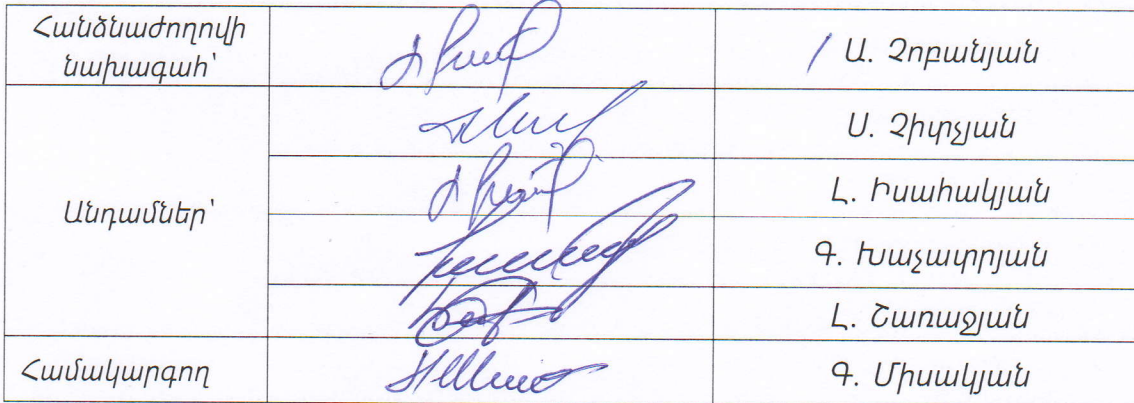 Հանձնաժողովի
նախագահ՝
/ Ա. Չոբանյան
Անդամներ՝
Ս. Չիտչյան
Լ. Իսահակյան
Գ. Խաչատրյան
Լ. Շառաջյան
Համակարգող
Գ. Միսակյան